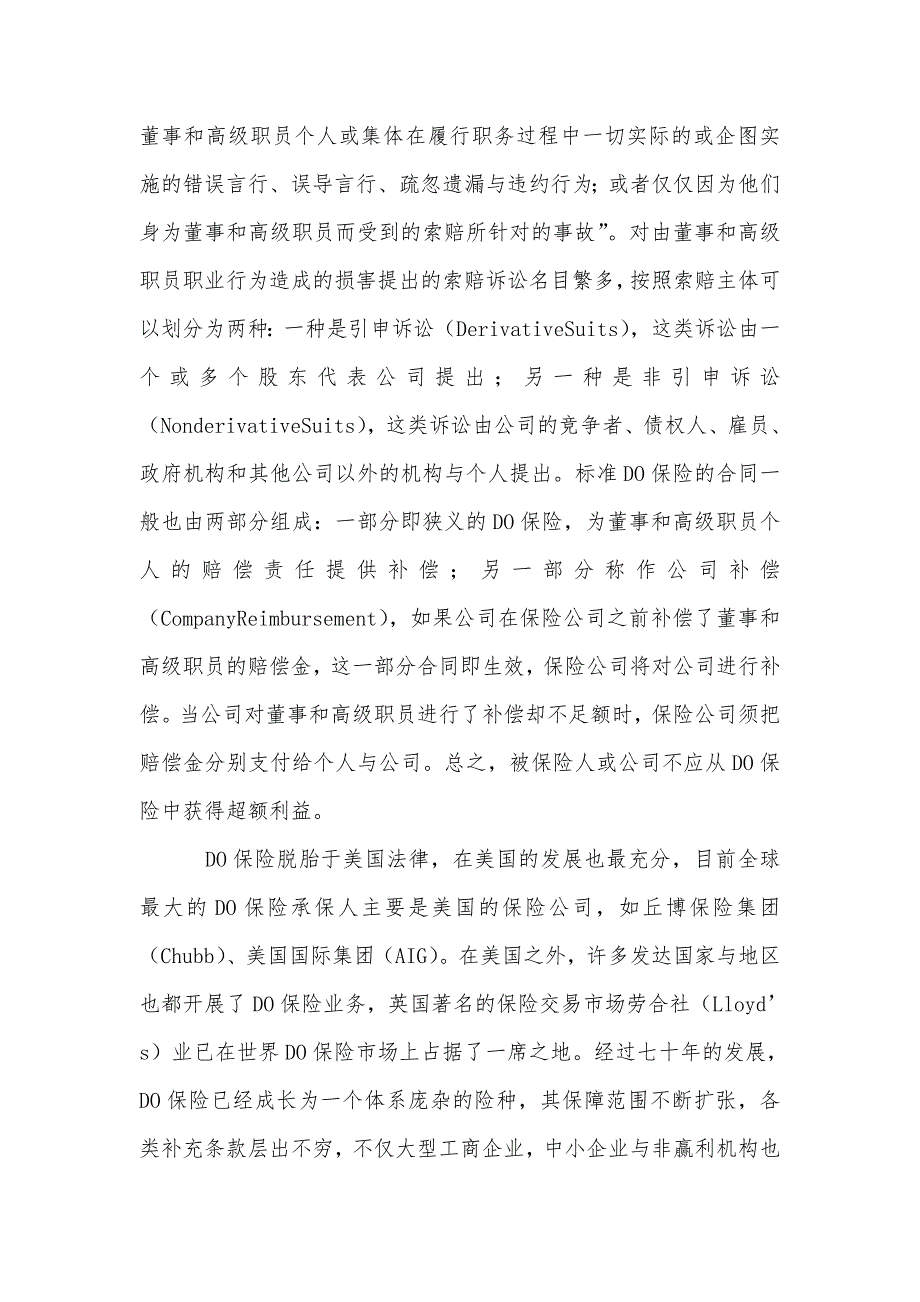 董事和高级职员个人或集体在履行职务过程中一切实际的或企图实
施的错误言行、误导言行、疏忽遗漏与违约行为；或者仅仅因为他们
身为董事和高级职员而受到的索赔所针对的事故”。对由董事和高级
职员职业行为造成的损害提出的索赔诉讼名目繁多，按照索赔主体可
以划分为两种：一种是引申诉讼（DerivativeSuits），这类诉讼由一
个或多个股东代表公司提出；另一种是非引申诉讼
（NonderivativeSuits），这类诉讼由公司的竞争者、债权人、雇员、
政府机构和其他公司以外的机构与个人提出。标准DO保险的合同一
般也由两部分组成：一部分即狭义的DO保险，为董事和高级职员个
人的赔偿责任提供补偿；另一部分称作公司补偿
（CompanyReimbursement），如果公司在保险公司之前补偿了董事和
高级职员的赔偿金，这一部分合同即生效，保险公司将对公司进行补
偿。当公司对董事和高级职员进行了补偿却不足额时，保险公司须把
赔偿金分别支付给个人与公司。总之，被保险人或公司不应从DO保
险中获得超额利益。
DO保险脱胎于美国法律，在美国的发展也最充分，目前全球
最大的DO保险承保人主要是美国的保险公司，如丘博保险集团
（Chubb）、美国国际集团（AIG）。在美国之外，许多发达国家与地区
也都开展了DO保险业务，英国著名的保险交易市场劳合社（Lloyd’
s）业已在世界DO保险市场上占据了一席之地。经过七十年的发展，
DO保险已经成长为一个体系庞杂的险种，其保障范围不断扩张，各
类补充条款层出不穷，不仅大型工商企业，中小企业与非赢利机构也